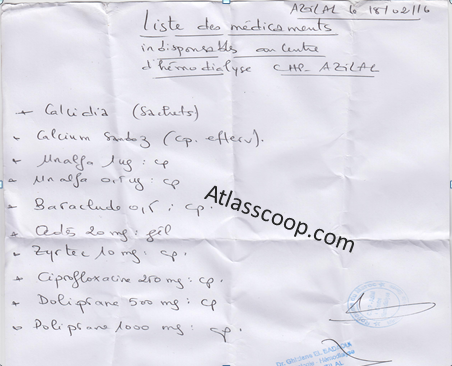 AZILAL le 18/02/16
Liste des médicaments
indispensables au centre
d'hémodialyse CHP-AZILAL
* Calcidia (Sachets)
* Calcium Sandoz (cp. efferv).
* Unalfa 1ug : cp
* Unalfa 0,5 ug : cp
* Baraclude 0,5 : cp.
* Odès 20 mg : gél
* Zyrtec 10 mg : cp.
* Ciprofloxacine 250 mg : cp.
* Doliprane 500 mg : cp
* Doliprane 1000 mg : cp.
Atlasscoop.com